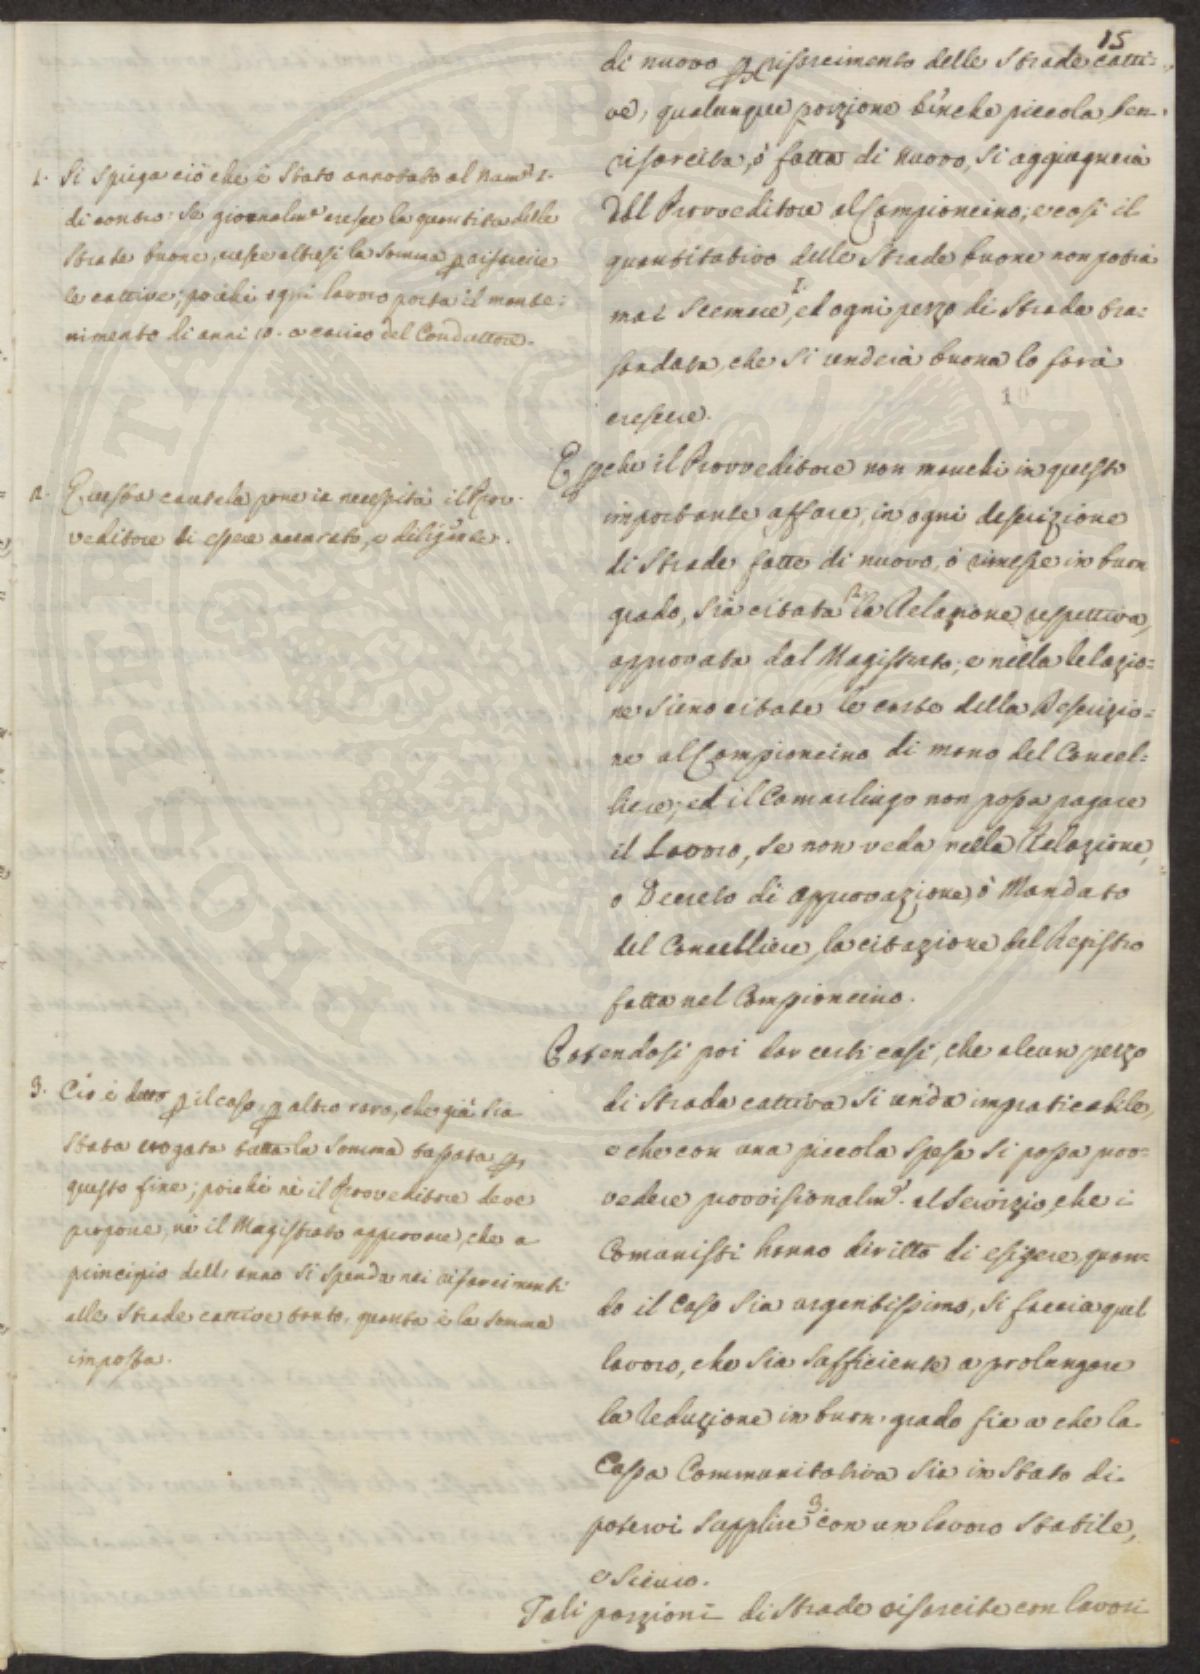 15
di nuovo p risarcimento delle Strade catti=
ve, qualunque porzione binchè piccola, ben
risarcita, ò fatta di nuovo, si aggiugnerà
dal Provveditore al Campioncino; e così il
quantitativo delle Strade buone non potrà
mai Scemare 1., ed ogni pezzo di Strada tra:
sandata, che si renderà buona lo farà
crescere.
E pche il Provveditore non manchi in questo
importante affare, in ogni descrizione
di Strade fatte di nuovo, ò rimesse in buon
grado, sia citata 2. la Relazione respettiva,
approvata dal Magistrato; e nella Relazio=
ne sieno citate le carte della Descrizio=
ne al Campioncino di mano del Cancel=
liere; ed il Camarlingo non possa pagare
il Lavoro, se non veda nella Relazione,
o Decreto di approvazione, ò Mandato
del Cancelliere, la citazione del Registro
fatta nel Campioncino.
Potendosi poi dar certi casi, che alcun pezzo
di Strada cattiva si renda impraticabile,
e che con una piccola spesa si possa prov=
vedere provvisionalmte. al Servizio, che i
Comunisti hanno diritto di esigere, quan=
do il caso sia urgentissimo, si faccia quel
lavoro, che sia sufficiente a prolungare
la Reduzione in buon grado fin a che la
Cassa Communitativa sia in stato di
potervi supplire 3. con un lavoro stabile,
e sicuro.
Tali porzioni di Strade risarcite con lavori
1. Si spiega ciò che è stato annotato al Num.o 1.
di contro: Se giornalmte cresce la quantità delle
Strade buone, cresce altresì la Somma p risarcire
le cattive; poichè ogni lavoro porta il mante=
nimento di anni 10. a carico del Conduttore.
2. Questa cautela pone in necessità il Prov=
veditore di essere accurato, e diligente.
3. Ciò è detto p il caso, p altro raro, che già sia
stata erogata tutta la Somma tassata p
questo fine; poichè nè il Provveditore deve
proporre, nè il Magistrato approvare, che a
principio dell'anno si spenda nei risarcimenti
alle Strade cattive tanto, quanta è la Somma
imposta.